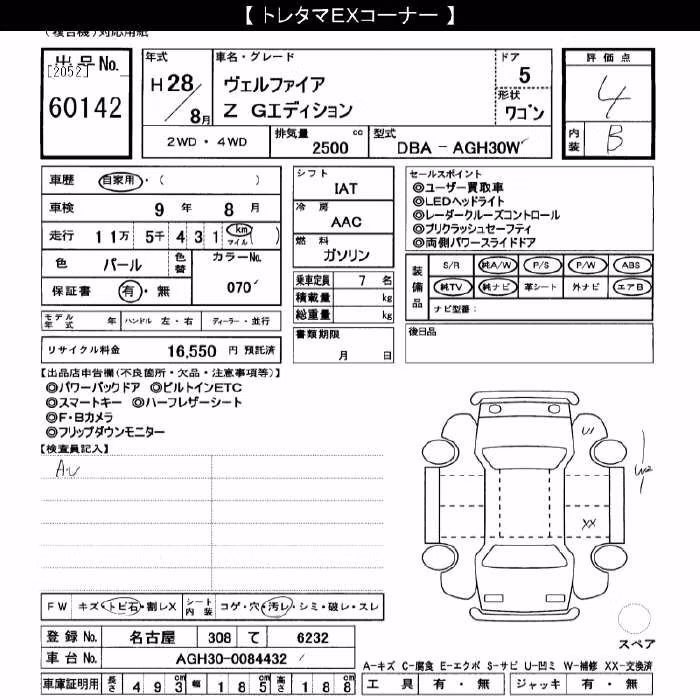 【 トレタマEXコーナー 】
(複合機)対応用紙
出品No.
[2052]
60142
年式
H 28/8月
車名・グレード
ヴェルファイア
Z Gエディション
ドア
5
形状
ワゴン
評価点
4
内装
B
2WD ・ 4WD
排気量
2500 cc
型式
DBA - AGH30W
車歴 自家用・( )
車検 9 年 8 月
走行 11万 5千 4 3 1 km マイル ( )
色 パール
色替
カラーNo.
070
保証書 有・無
モデル年式 年
ハンドル 左・右
ディーラー・並行
リサイクル料金 16,550 円 預託済
シフト
IAT
冷房
AAC
燃料
ガソリン
乗車定員 7 名
積載量 kg
総重量 kg
書類期限
月 日
セールスポイント
◎ユーザー買取車
◎LEDヘッドライト
◎レーダークルーズコントロール
◎プリクラッシュセーフティ
◎両側パワースライドドア
装備品
S/R 純A/W P/S P/W ABS
純TV 純ナビ 革シート 外ナビ エアB
ナビ型番:
後日品
【出品店申告欄(不良箇所・欠品・注意事項等)】
◎パワーバックドア ◎ビルトインETC
◎スマートキー ◎ハーフレザーシート
◎F・Bカメラ
◎フリップダウンモニター
【検査員記入】
A・U
U1
W2
XX
FW キズ・トビ石・割レX
シート内装 コゲ・穴・汚レ・シミ・破レ・スレ
登録No. 名古屋 308 て 6232
車台No. AGH30-0084432
車庫証明用 長さ 493cm 幅 185cm 高さ 188cm
スペア
A-キズ C-腐食 E-エクボ S-サビ U-凹ミ W-補修 XX-交換済
工具 有・無 ジャッキ 有・無